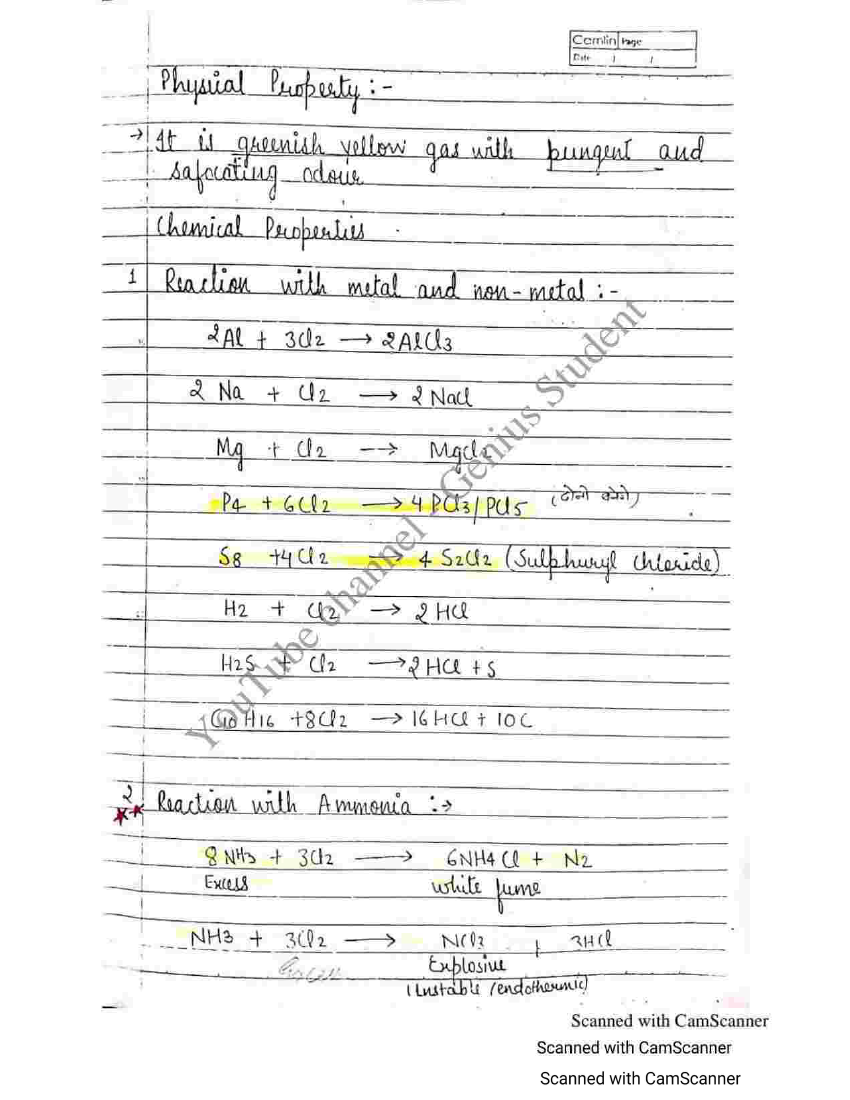 Camlin Page
Date / /
Physical Property :-
→ It is greenish yellow gas with pungent and
safocating odour
Chemical Properties
1 Reaction with metal and non-metal :-
2Al + 3Cl2 → 2AlCl3
2 Na + Cl2 → 2 NaCl
Mg + Cl2 → MgCl2
P4 + 6Cl2 → 4 PCl3/PCl5 (दोनो करेगे)
S8 +4Cl2 → 4 S2Cl2 (Sulphuryl chloride)
H2 + Cl2 → 2 HCl
H2S + Cl2 → 2 HCl + S
C10 H16 +8Cl2 → 16 HCl + 10C
2 Reaction with Ammonia :→
8 NH3 + 3Cl2 → 6NH4 Cl + N2
Excess white fume
NH3 + 3Cl2 → NCl3 + 3HCl
Excess Explosive
Unstable /endothermic)
YouTube channel - Genius Student
Scanned with CamScanner
Scanned with CamScanner
Scanned with CamScanner